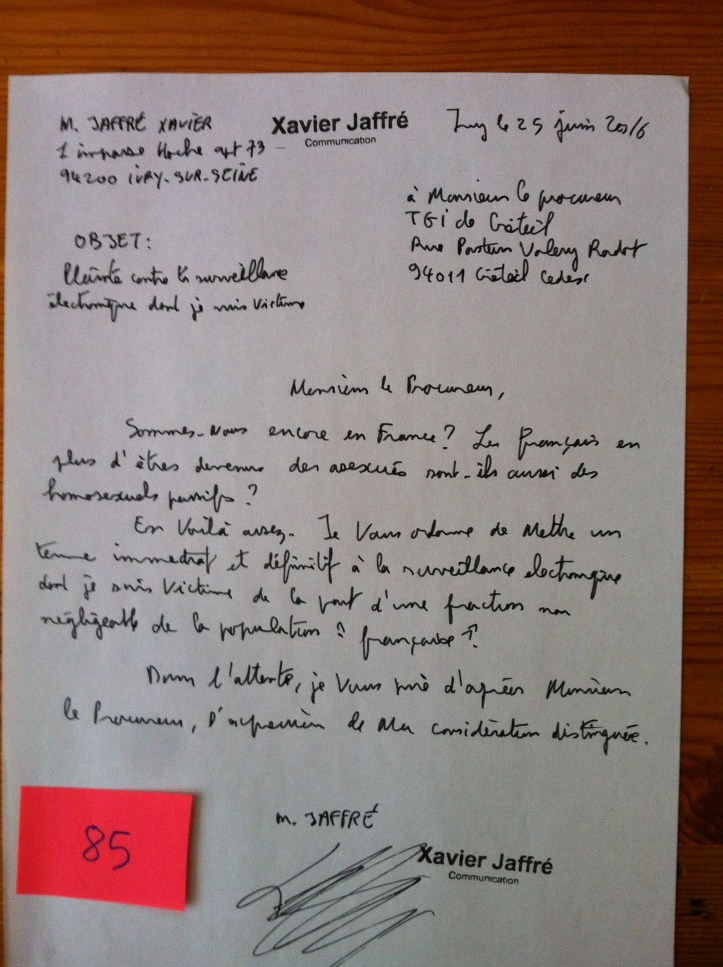 M. JAFFRÉ XAVIER
1 impasse Hoche apt 73
94200 IVRY-SUR-SEINE
Xavier Jaffré
Communication
Ivry le 25 juin 2016
à Monsieur le procureur
TGI de Créteil
Rue Pasteur Valery Radot
94011 Créteil Cedex
OBJET:
Plainte contre la surveillance
électronique dont je suis victime
Monsieur le Procureur,
Sommes-nous encore en France? Les français en
plus d'êtres devenus des asexués sont-ils aussi des
homosexuels passifs?
En voilà assez. Je vous ordonne de mettre un
terme immédiat et définitif à la surveillance électronique
dont je suis victime de la part d'une fraction non
négligeable de la population "française".
Dans l'attente, je vous prie d'agréer Monsieur
le Procureur, l'expression de ma considération distinguée.
M. JAFFRÉ
Xavier Jaffré
Communication
85